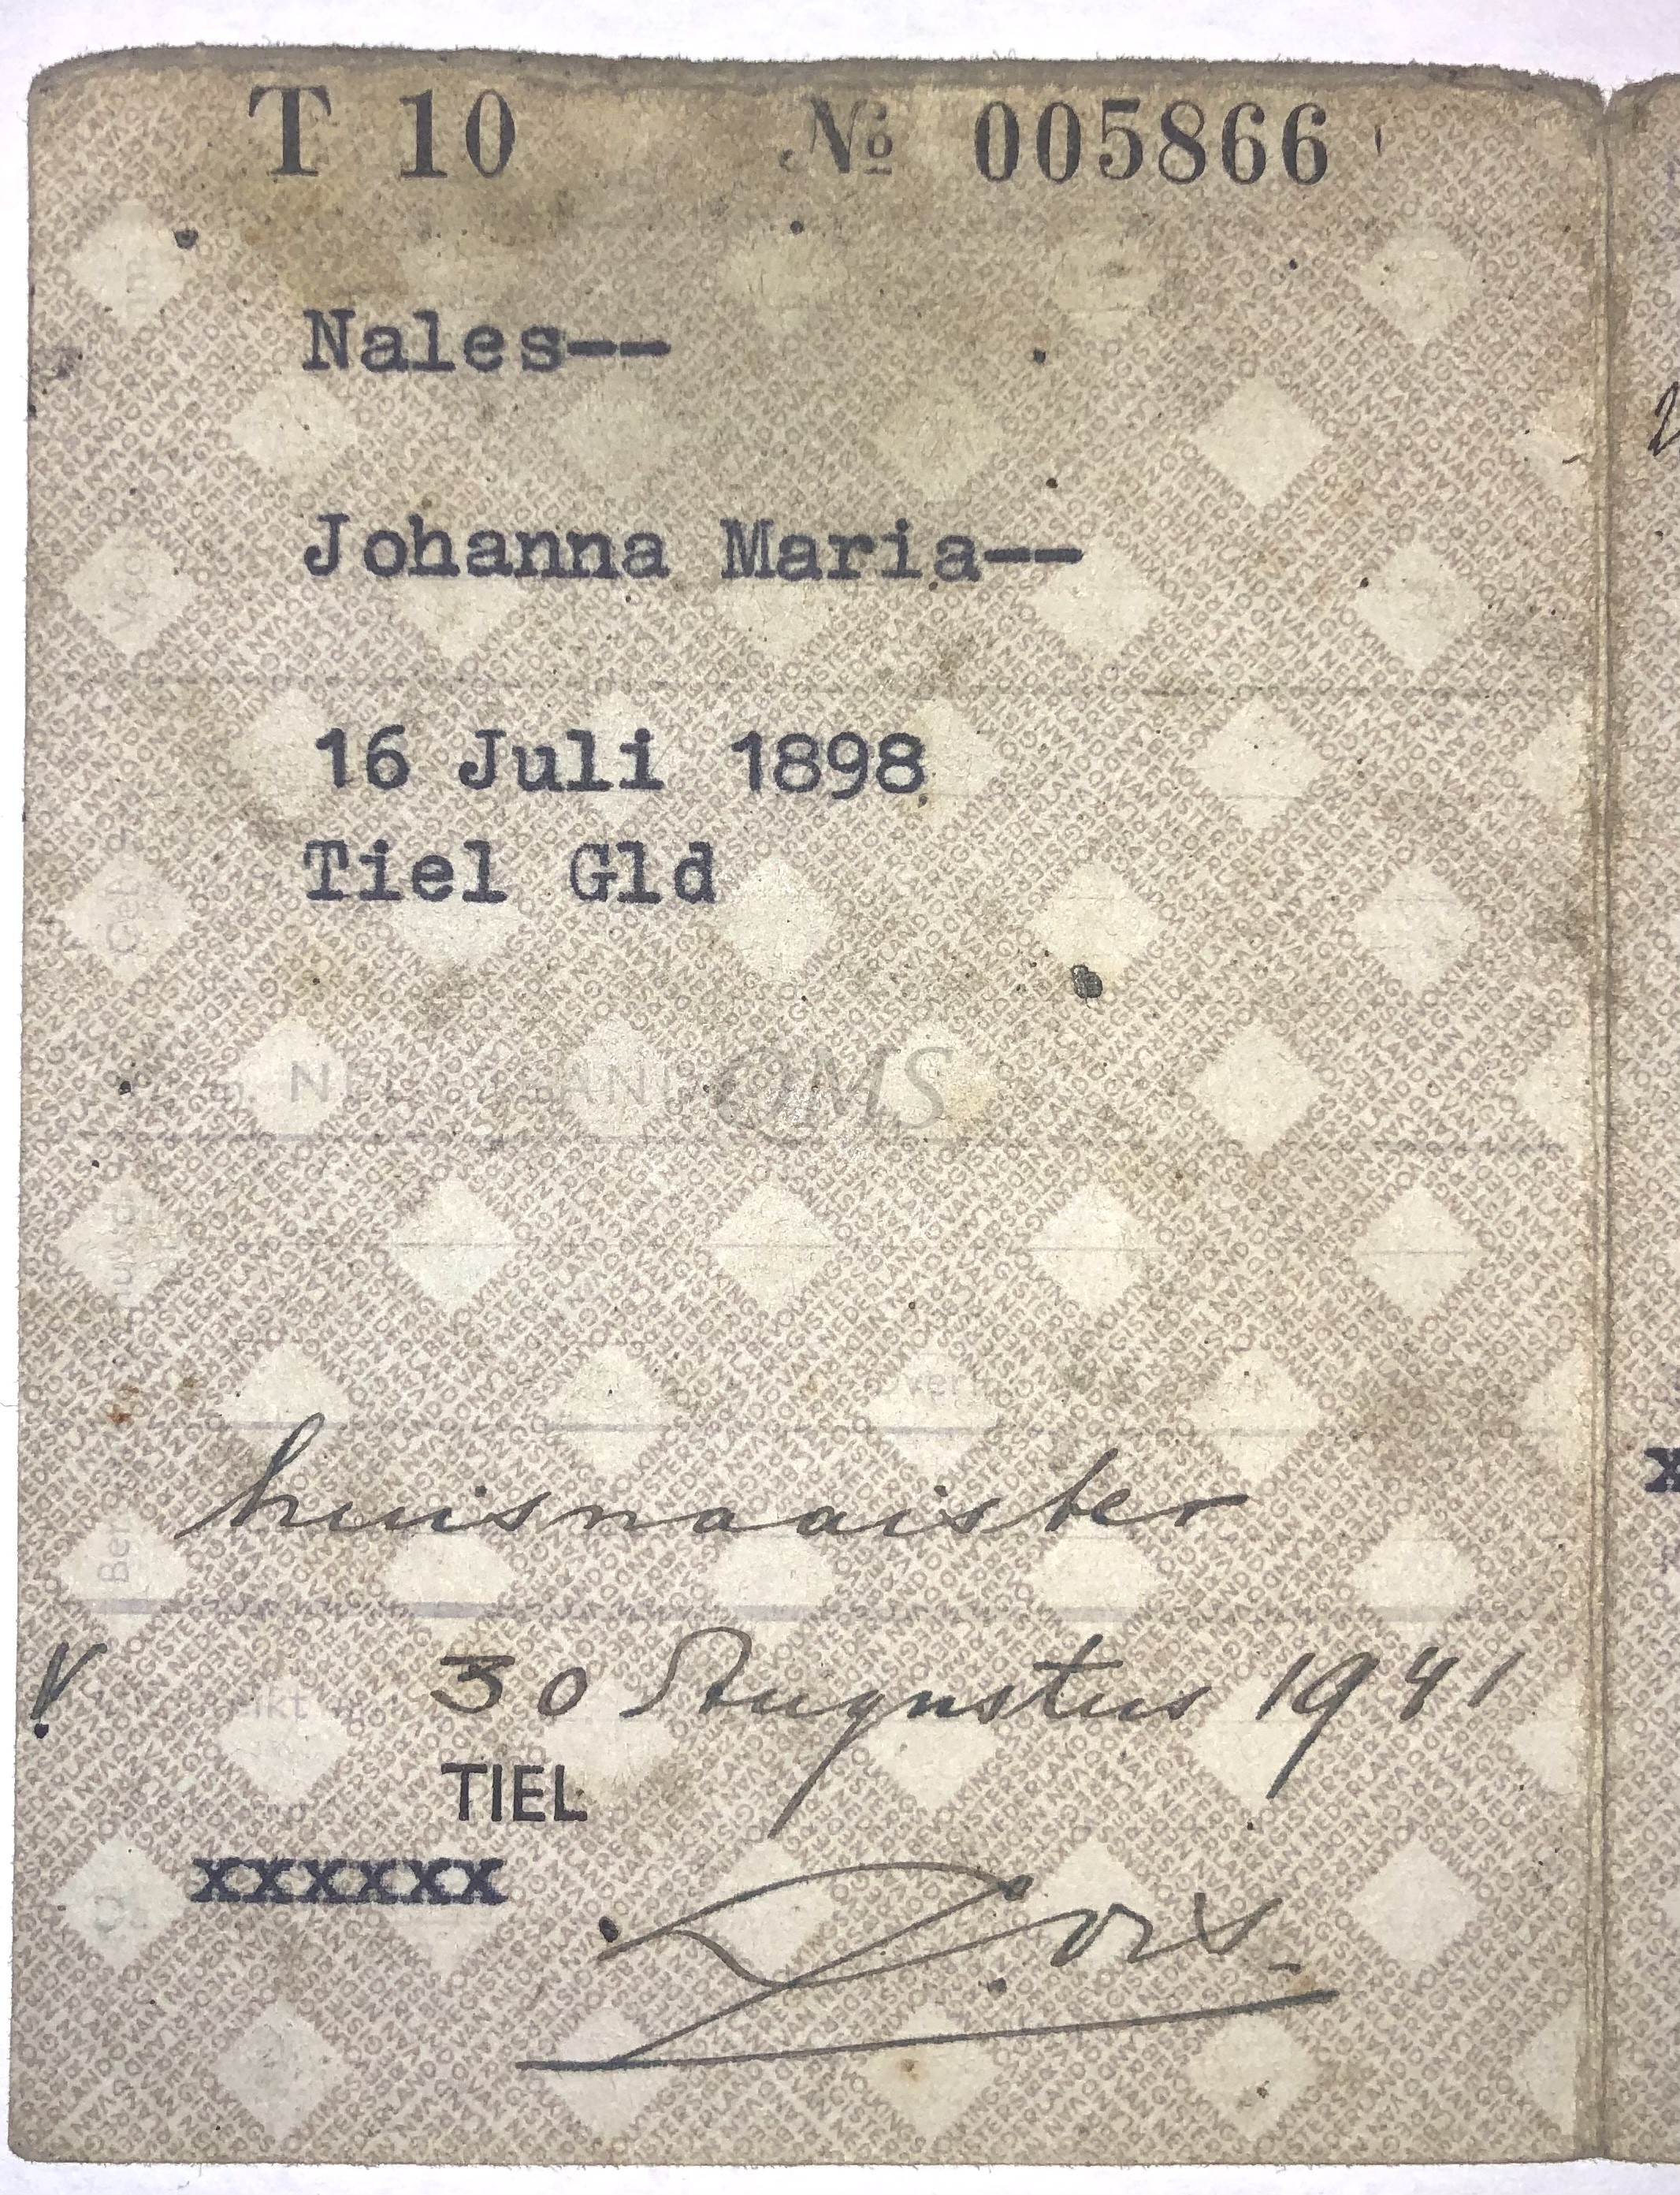 T 10 № 005866
Nales--
Johanna Maria--
16 Juli 1898
Tiel Gld
QMS
huisnaaister
30 Augustus 1941
TIEL
xxxxxx